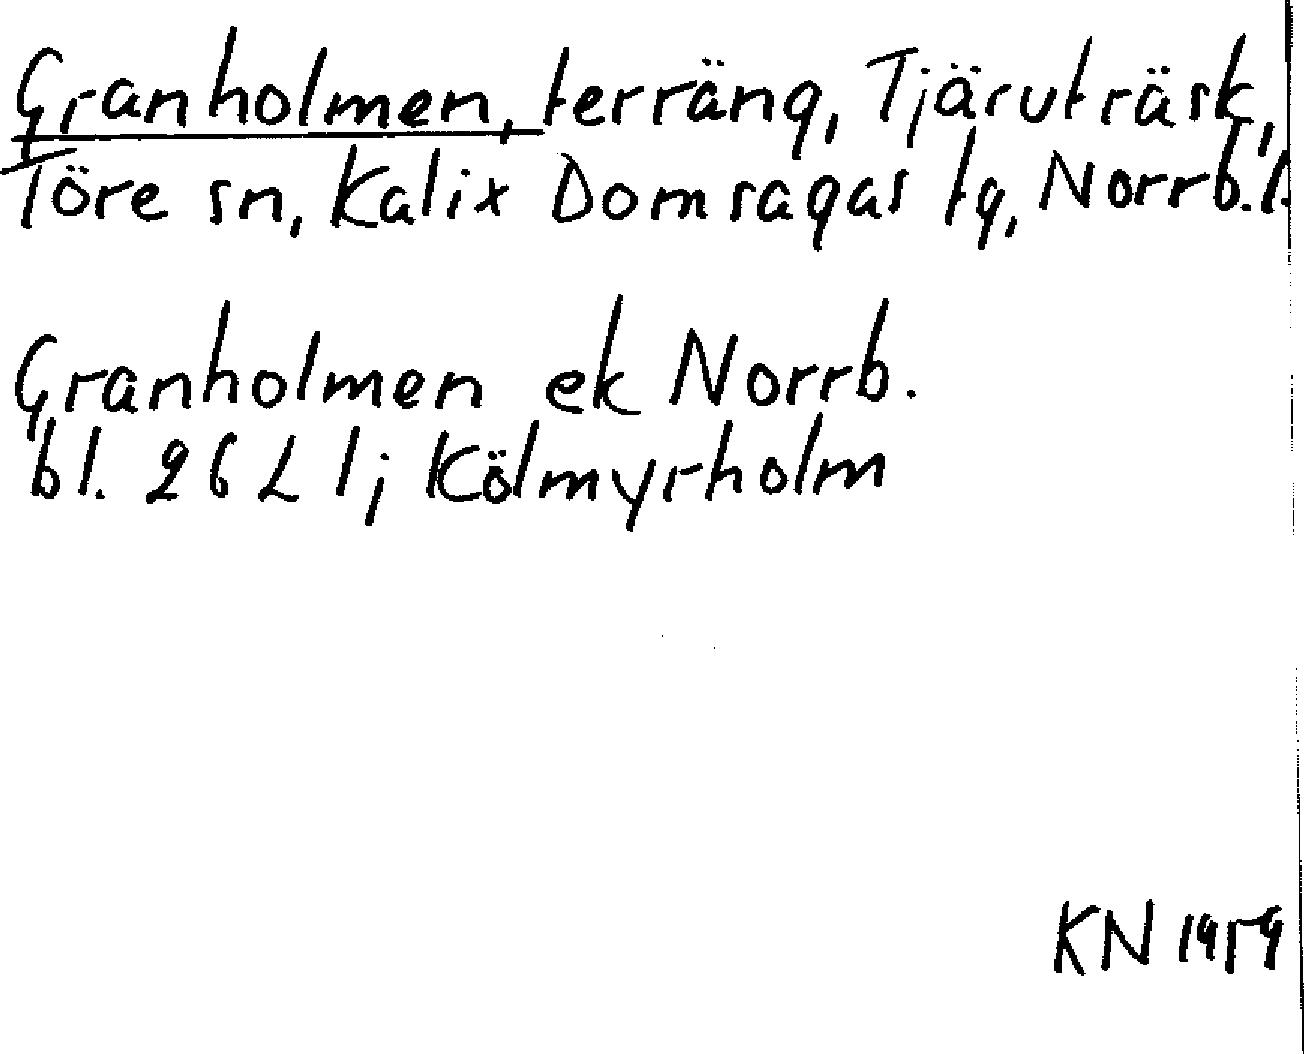 Granholmen, terräng, Tjäruträsk,
Töre sn, Kalix Domsagas tg, Norrb. l.
Granholmen ek Norrb.
bl. 26 L 1j Kölmyrholm
KN 1959